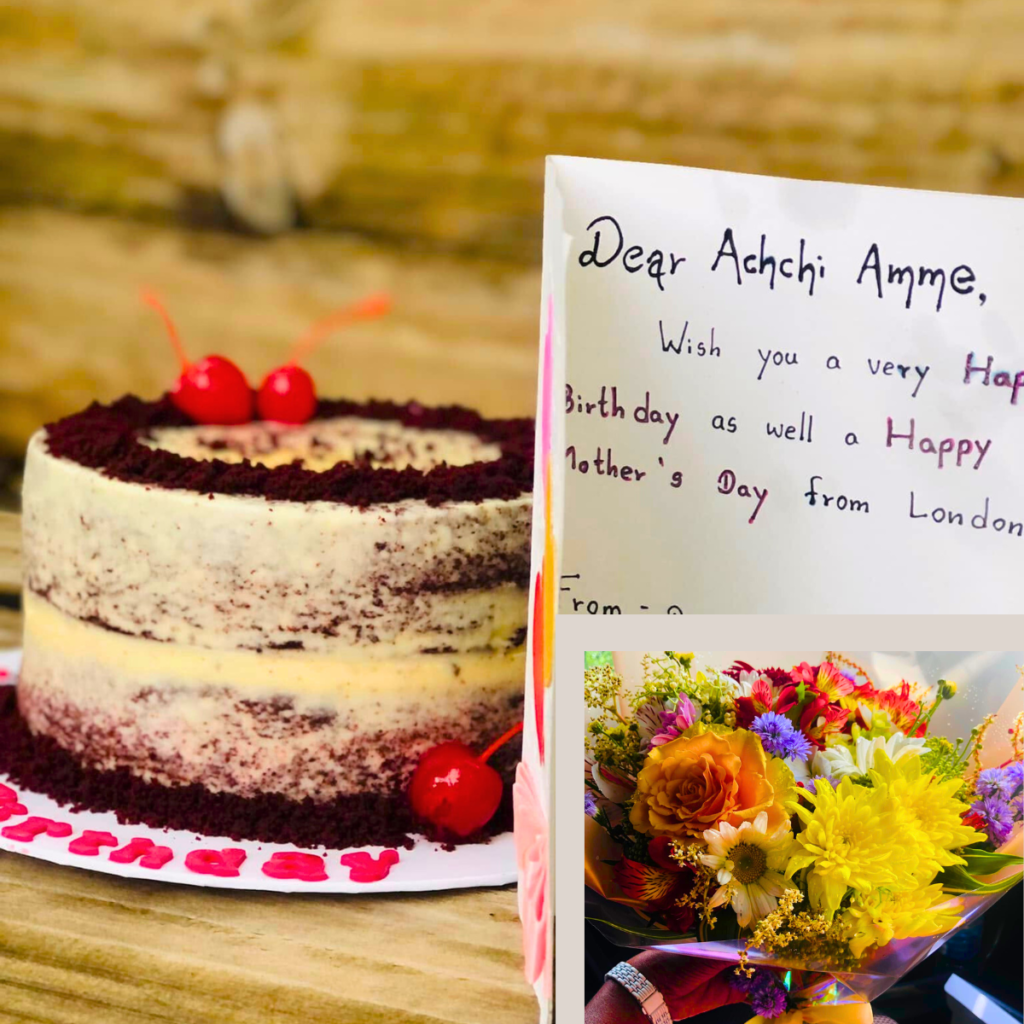 Dear Achchi Amme,
Wish you a very Hap
Birthday as well a Happy
Mother's Day from London
From -
Birthday